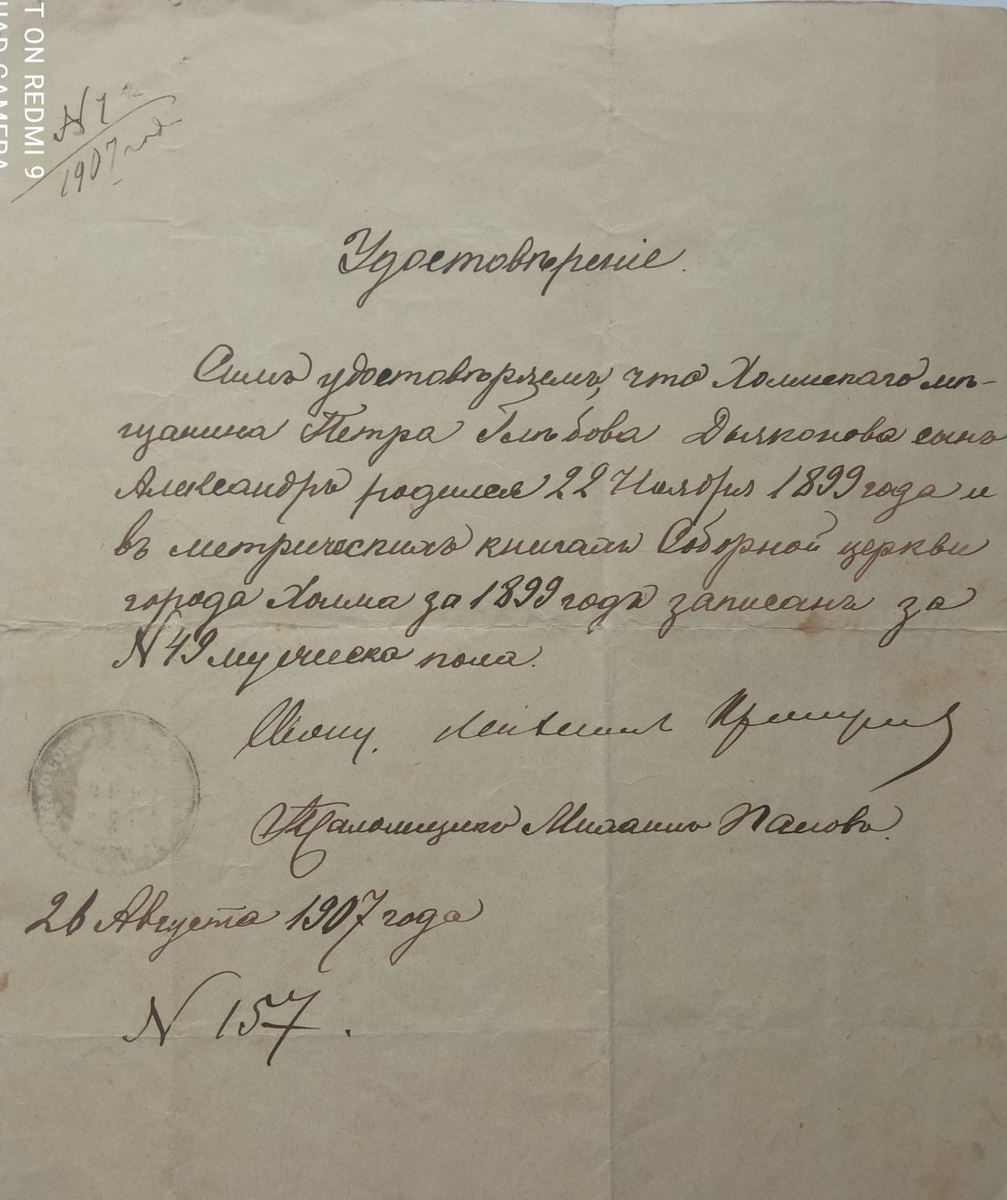 T ON REDMI 9
N 1
1907 год
Удостовѣреніе.
Симъ удостовѣряемъ, что Холмскаго мѣ-
щанина Петра Глѣбова Дьяконова сынъ
Александръ родился 22 Ноября 1899 года и
въ метрическихъ книгахъ Соборной церкви
города Холма за 1899 годъ записанъ за
N 49 мужеска пола.
Свящ.
Псаломщикъ Михаилъ
26 Августа 1907 года
N 157.